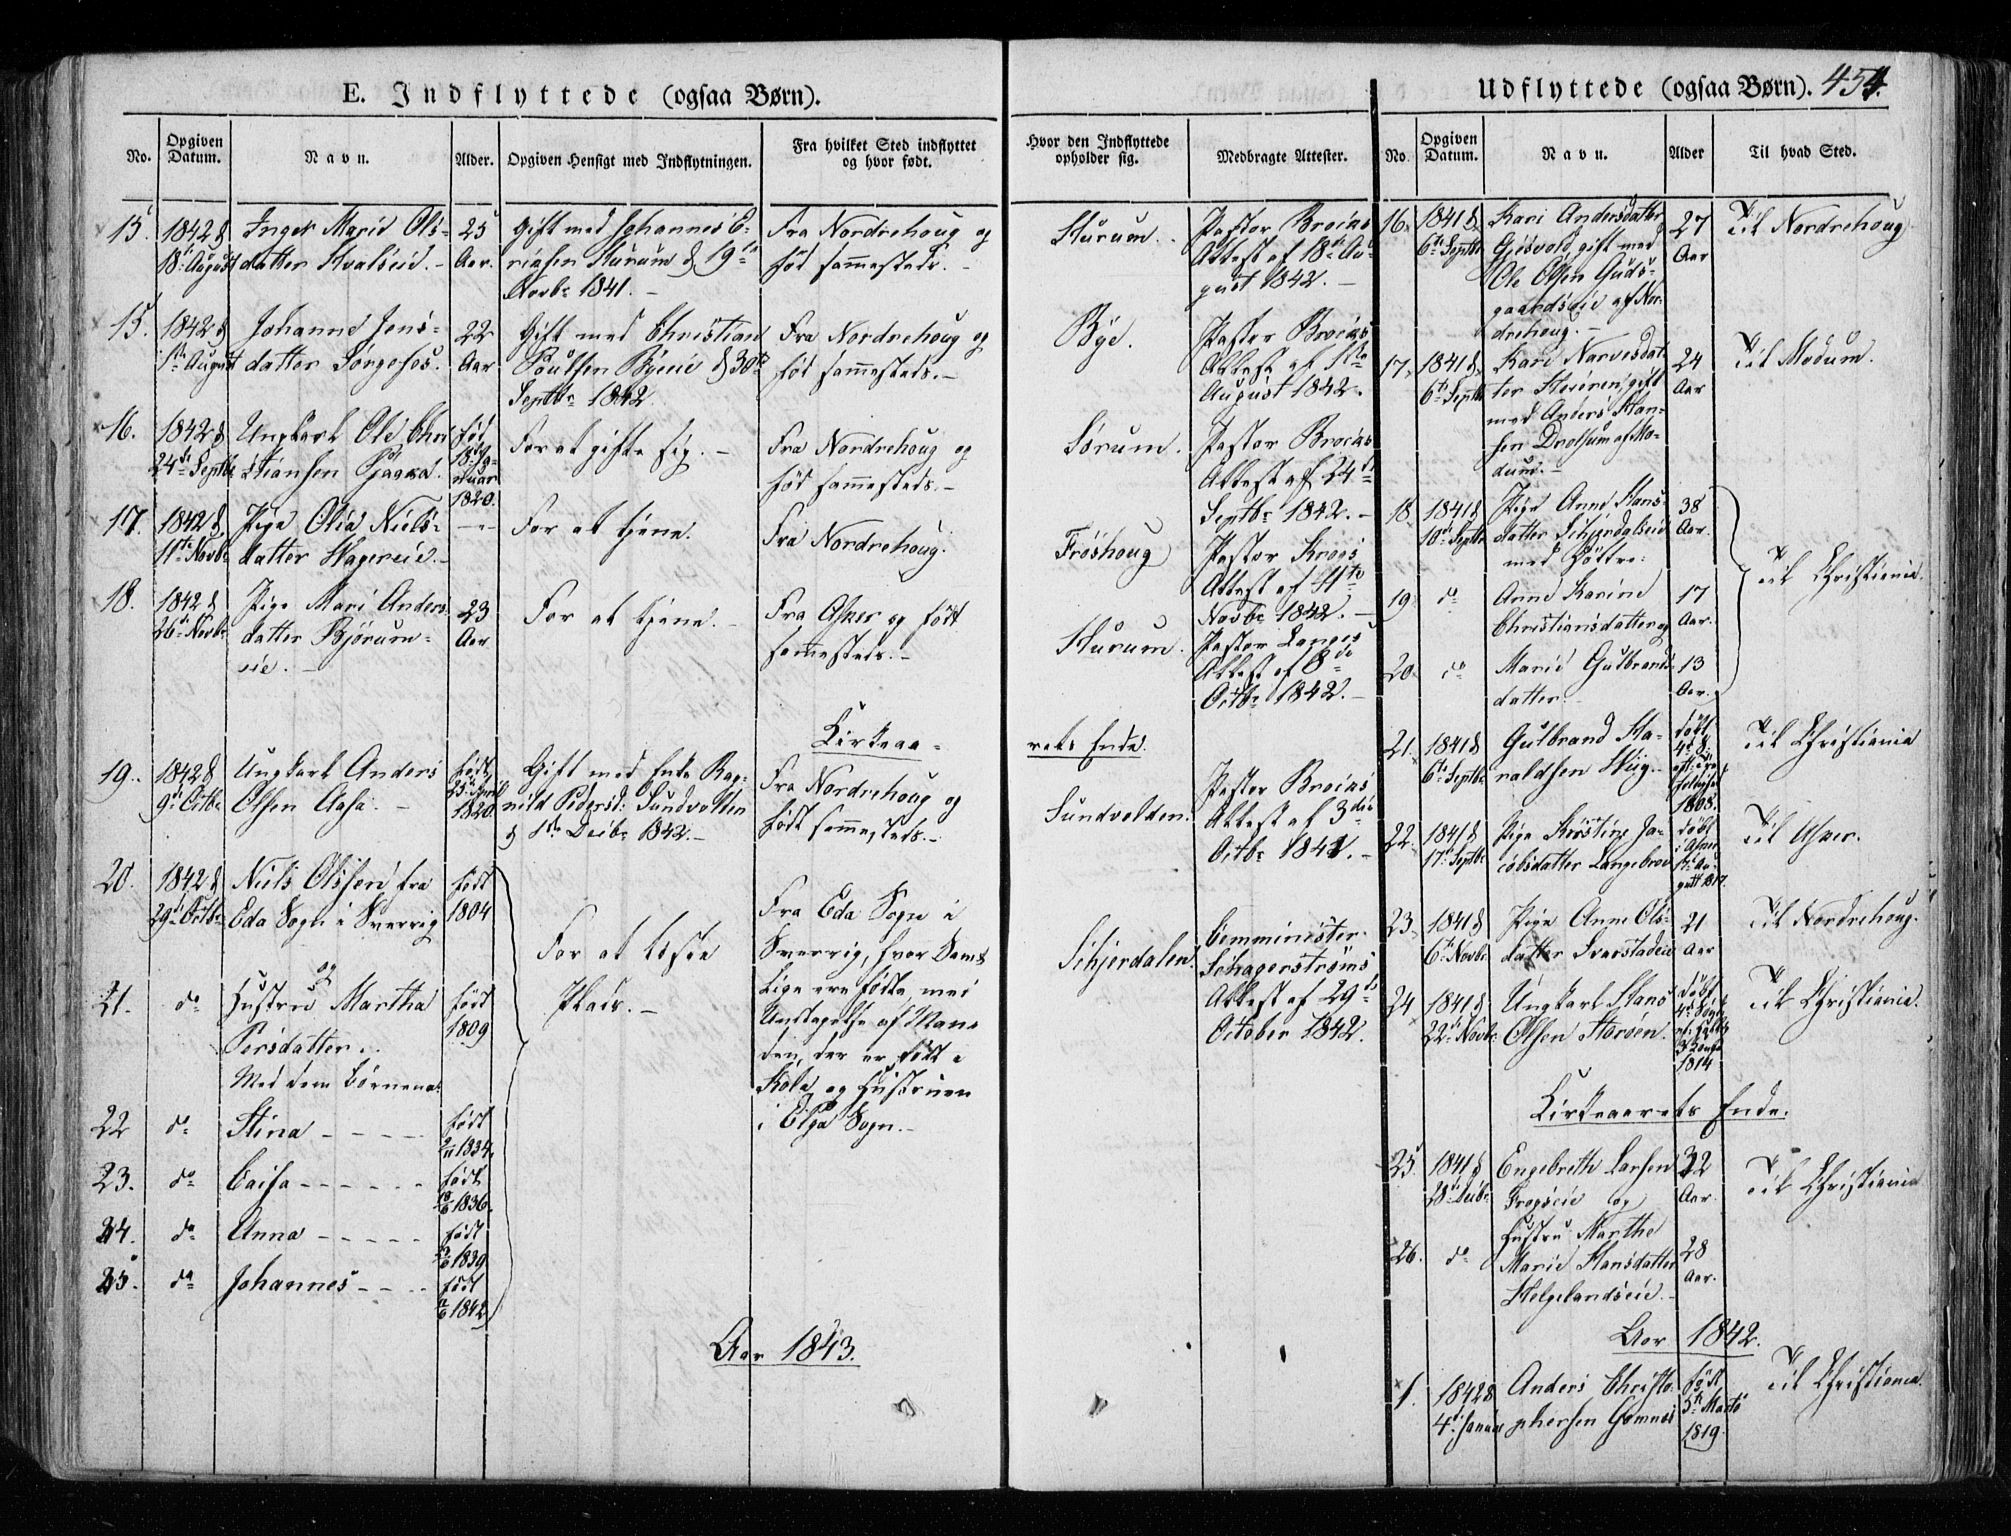 E. Indflyttede (ogsaa Børn).
No.
Opgiven
Datum.
Navn.
Alder.
Opgiven Hensigt med Indflytningen.
Fra hvilket Sted indflyttet
og hvor født.
Hvor den Indflyttede
opholder sig.
Medbragte Attester.
15.
1842 d
18de August
Inger Marie Ols-
datter Kvalseie.
25
Aar.
Gift med Johannes E-
riksen Kurum d 19de
Novbr 1841.
Fra Nordrehoug og
fød sammesteds.
Hurum.
Pastor Brocks
Attest af 18de Au-
gust 1842.
15.
1842 d
1ste August
Johanne Jens-
datter Sørgefos.
22
Aar
Gift med Christian
Poulsen Byeeie d 30te
Septbr 1842
Fra Nordrehoug og
fød sammesteds.
Bye.
Pastor Brocks
Attest af 1ste
August 1842.
16.
1842 d
24de Septbr
Ungkarl Ole Chri
stiansen Gjaard.
fød
18de Ja-
nuar
1820.
For at gifte sig.
Fra Nordrehoug og
fød sammesteds.
Sørum.
Pastor Brocks
Attest af 24de
Septbr 1842.
17.
1842 d
11te Novbr
Pige Olia Niels-
datter Hagereie.
For at tjene.
Fra Nordrehoug.
Frøshoug
Pastor Krogs
Attest af 11te
Novbr 1842.
18.
1842 d
26de Novbr
Pige Mari Anders
datter Bjørum-
eie.
23
Aar
For at tjene.
Fra Asker og født
sammesteds.
Hurum.
Pastor Langes
Attest af 8de
Octbr 1842.
Kirkeaa-
rets Ende.
19.
1842 d
9de Octbr
Ungkarl Anders
Olsen Aasa.
født
25de April
1820.
Gift med Enke Rag-
nild Pedersd: Sundvolden
d 1ste Decbr 1842.
Fra Nordrehoug og
født sammesteds.
Sundvolden.
Pastor Brocks
Attest af 3die
Octbr 1842.
20.
1842 d
29de Octbr
Niels Olssen fra
Eda Sogn i Sverrig
født
1804
og
21.
do
Hustru Martha
Persdatter.
født
1809
Med dem Børnene:
For at løste
Plads.
Fra Eda Sogn i
Sverrig, hvor Sam-
lige ere fødte, med
Undtagelse af Man-
den, der er født i
Kola og Hustruen
i Elga Sogn.
Schjerdalen.
Comminister
Schagerstrøms
Attest af 29de
October 1842.
22
do
Stina
født
2/11 1834.
23.
do
Caisa
født
18/6 1836.
24.
do
Anna
født
1839
25.
do
Johannes
født
1842
Aar 1843.
Udflyttede (ogsaa Børn). 454.
No.
Opgiven
Datum.
Navn.
Alder
Til hvad Sted.
16.
1841 d
6te Septbr
Kari Andersdatter
Gjesvold, gift med
Ole Olsen Guds-
gaardseie af Nor-
drehoug.
27
Aar
Til Nordrehoug
17.
1841 d
6te Septbr
Kari Narvesdat
ter Støveren, gift
med Anders Han-
sen Drolsum af Mo-
dum.
24
Aar
Til Modum.
18
1841 d
10de Septbr
Pige Anne Hans-
datter Schjerdalseie
med Døttre:
38
Aar.
19
do
Anne Karine
Christiansdatter og
17
Aar.
20
do
Marie Gulbrands
datter.
13
Aar.
Til Christiania.
21.
1841 d
6te Septbr
Gulbrand Ha-
raldsen Wiig.
døbt
1808.
Til Christiania
22.
1841 d
17de Septbr
Pige Kirstine Ja-
cobsdatter Langebroe
døbt
i Asker
gust 1817.
Til Asker.
23.
1841 d
6te Novbr
Pige Anne Ols-
datter Svarstadeie
21
Aar
Til Nordrehoug.
24
1841 d
22de Novbr
Ungkarl Hans
Olsen Storøen.
døbt
1814
Til Christiania.
Kirkeaarets Ende.
25
1841 d
28de Decbr
Engebreth Larsen
Frogseie og
32
Aar.
Til Christiania
26.
do
Hustru Marthe
Marie Hansdatter
Helgelandseie.
28
Aar.
Aar 1842.
1.
1842 d
4de Januar
Anders Christo-
phersen Gomnes
født
5te Marts
1819.
Til Christiania.